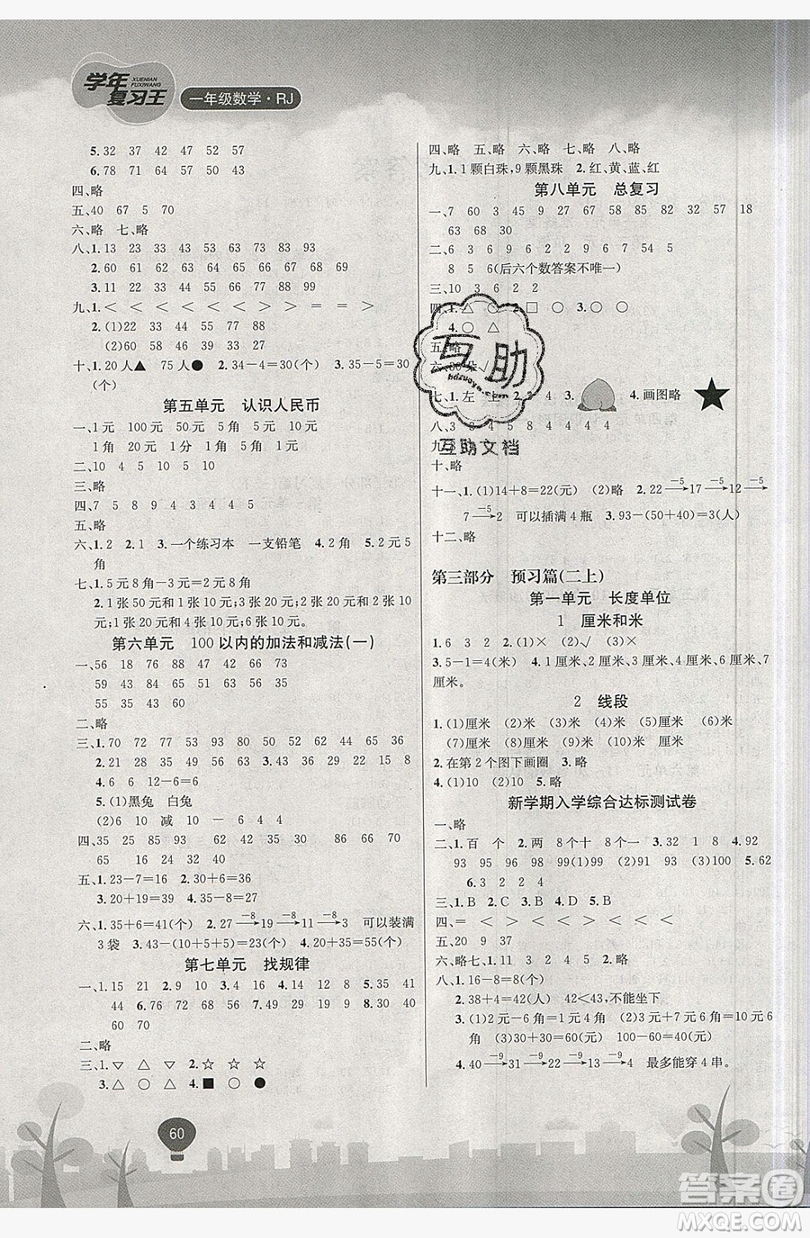 学年
复习王
XUENIAN
FUXIWANG
一年级数学·RJ
5.32 37 42 47 52 57
6.78 71 64 57 50 43
四、略
五、40 67 5 70
六、略 七、略
八、1.13 23 33 43 53 63 73 83 93
2.60 61 62 63 64 65 66 67 68 69
3.11 22 33 44 55 66 77 88
九、1.＜ ＜ ＜ ＜ ＞ ＞ ＝ ＝ ＞
2.(1)22 33 44 55 66 77 88
(2)60 69 68 67 66 65
十、1.20人▲ 75人● 2.34－4＝30(个) 3.35－5＝30
(个)
第五单元 认识人民币
一、1元 100元 50元 5角 5元 10元
1角 20元 1分 1角 5分
二、10 4 10 5 10
三、略
四、7 5 7 5 8 9 4
五、略
六、1.2 2.1 3.一个练习本 一支铅笔 4.2角 5.2元5
角
七、1.5元8角－3元6角＝2元2角
2.1张50元和5张10元;2张50元;1张50元,2张
20元和2张5元;1张50元,1张20元,2张10元和
2张5元。
第六单元 100以内的加法和减法(一)
一、56 18 76 88 47 33
59 43 54 35 44 62
55 35 43 60
二、略
三、1.70 72 73 80 52 93 64 65
2.21 28 35 42 49 56 63 70 77
3.39 38 37 36 35 34 33 32 31
4.6 12－6＝6
5.(1)黑兔 白兔
(2)6 10 减 10－6＝4
四、35 25 85 93 62 30 86 70
65 35 54 32 60 86 66 60
五、1.23－7＝16 2.30＋6＝36
3.20＋19＝39 4.35－8＝27
六、1.35＋6＝41(个) 2.27 －8→ 19 －8→ 11 －8→ 3 可以装满
3袋 3.43－(10＋5＋5)＝23(个) 4.20＋35＝55(个)
第七单元 找规律
一、1.15 21 2.9 10 3.16 4 4.15 19 5.48
42 6.76 72 68 7.50 33 8.20 30 40
60 70
二、略
三、1.▽ △ ▽ △ 2.☆ ☆ ☆ ☆
3.△ ○ △ ○ 4.■ ● ○ ●
60
四、略 五、略 六、略 七、略 八、略
九、1.1颗白珠,9颗黑珠 2.红、黄、蓝、红
第八单元 总复习
一、7 60 3 45 9 58 85 82 32 57 18
63 68 30
二、6 3 6 9 6 2 2 2 3 1 4
8 5 6(后六个数答案不唯一)
三、10 20 15 40
四、1.△ ○ 2.□ ■ ○ 3.○ ○
4.○ △
互助
互助文档
七、1.左 上 2.2 4 3. 4.画图略
八、3 3 4 5 8 4 4 4 4
十、略
十一、1.(1)14＋8＝22(元) (2)略 2.22 －5→ 17 －5→ 12 －5→
7 －5→ 2 可以插满4瓶 3.93－(50＋40)＝3(人)
十二、略
第三部分 预习篇(二上)
第一单元 长度单位
1 厘米和米
1.6 3 2 2.(1)× (2)√ (3)×
3.5－1＝4(米) 4.1厘米、2厘米、3厘米、4厘米、5厘
米。
2 线段
1.(1)厘米 (2)米 (3)厘米 (4)米 (5)厘米 (6)米
(7)厘米 (8)厘米 (9)米 (10)厘米
2.在第2个图下画圈 3.略
4.(1)10 (2)10 5.略
新学期入学综合达标测试卷
一、略
二、1.百 个 2.两 8个十 8个一 3.8 4.92
93 95 96 98 5.91 90 69 68 6.10 62
三、1.B 2.C 3.B 4.A 5.C
四、＝ ＜ ＞ ＜ ＜ ＜ ＜ ＜
五、20 9 37
六、略 七、1.11 3 2 5 2.略
八、1.16－8＝8(个)
2.38＋4＝42(人) 42＜43,不能坐下
3.(1)100－6＝94(元) (2)3元＋7元6角＝10元6
角 (3)30＋30＝60(元)
4.40 －9→ 31 －9→ 22 －9→ 13 －9→ 4 最多能穿4串。
答案圈
MXQE.COM